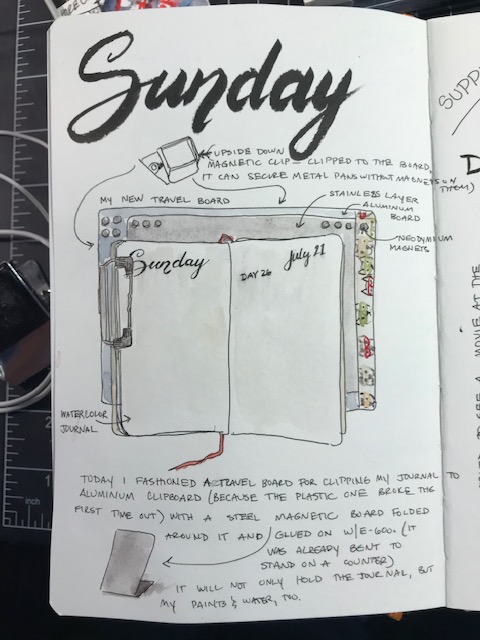 Sunday
UPSIDE DOWN
MAGNETIC CLIP – CLIPPED TO THE BOARD,
IT CAN SECURE METAL PANS WITHOUT MAGNETS ON
THEM)
MY NEW TRAVEL BOARD
STAINLESS LAYER
ALUMINUM
BOARD
NEODYMIUM
MAGNETS
Sunday
July 21
DAY 26
WATERCOLOR
JOURNAL
TODAY I FASHIONED A TRAVEL BOARD FOR CLIPPING MY JOURNAL TO
ALUMINUM CLIPBOARD (BECAUSE THE PLASTIC ONE BROKE THE
FIRST TIME OUT) WITH A STEEL MAGNETIC BOARD FOLDED
AROUND IT AND GLUED ON W/E-600. (IT
WAS ALREADY BENT TO
STAND ON A COUNTER)
IT WILL NOT ONLY HOLD THE JOURNAL, BUT
MY PAINTS & WATER, TOO.
SUPP
D
A MOVIE AT THE
1
2